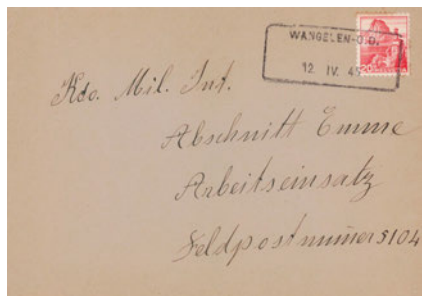 WANGELEN-O.D.
12. IV. 45
20 HELVETIA
Kdo. Mil. Int.
Abschnitt Emme
Arbeitseinsatz
Feldpostnummer 5104